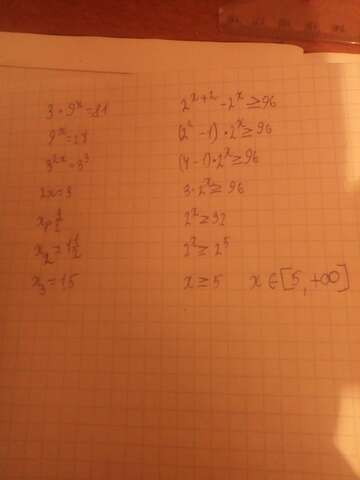 3·9^x=81
9^x=27
3^2x=3^3
2x=3
x_1=3/2
x_2=1 1/2
x_3=1,5
2^x+2 -2^x ≥96
(2^2-1)·2^x≥96
(4-1)·2^x≥96
3·2^x≥96
2^x≥32
2^x≥2^5
x≥5 x∈[5,+∞)